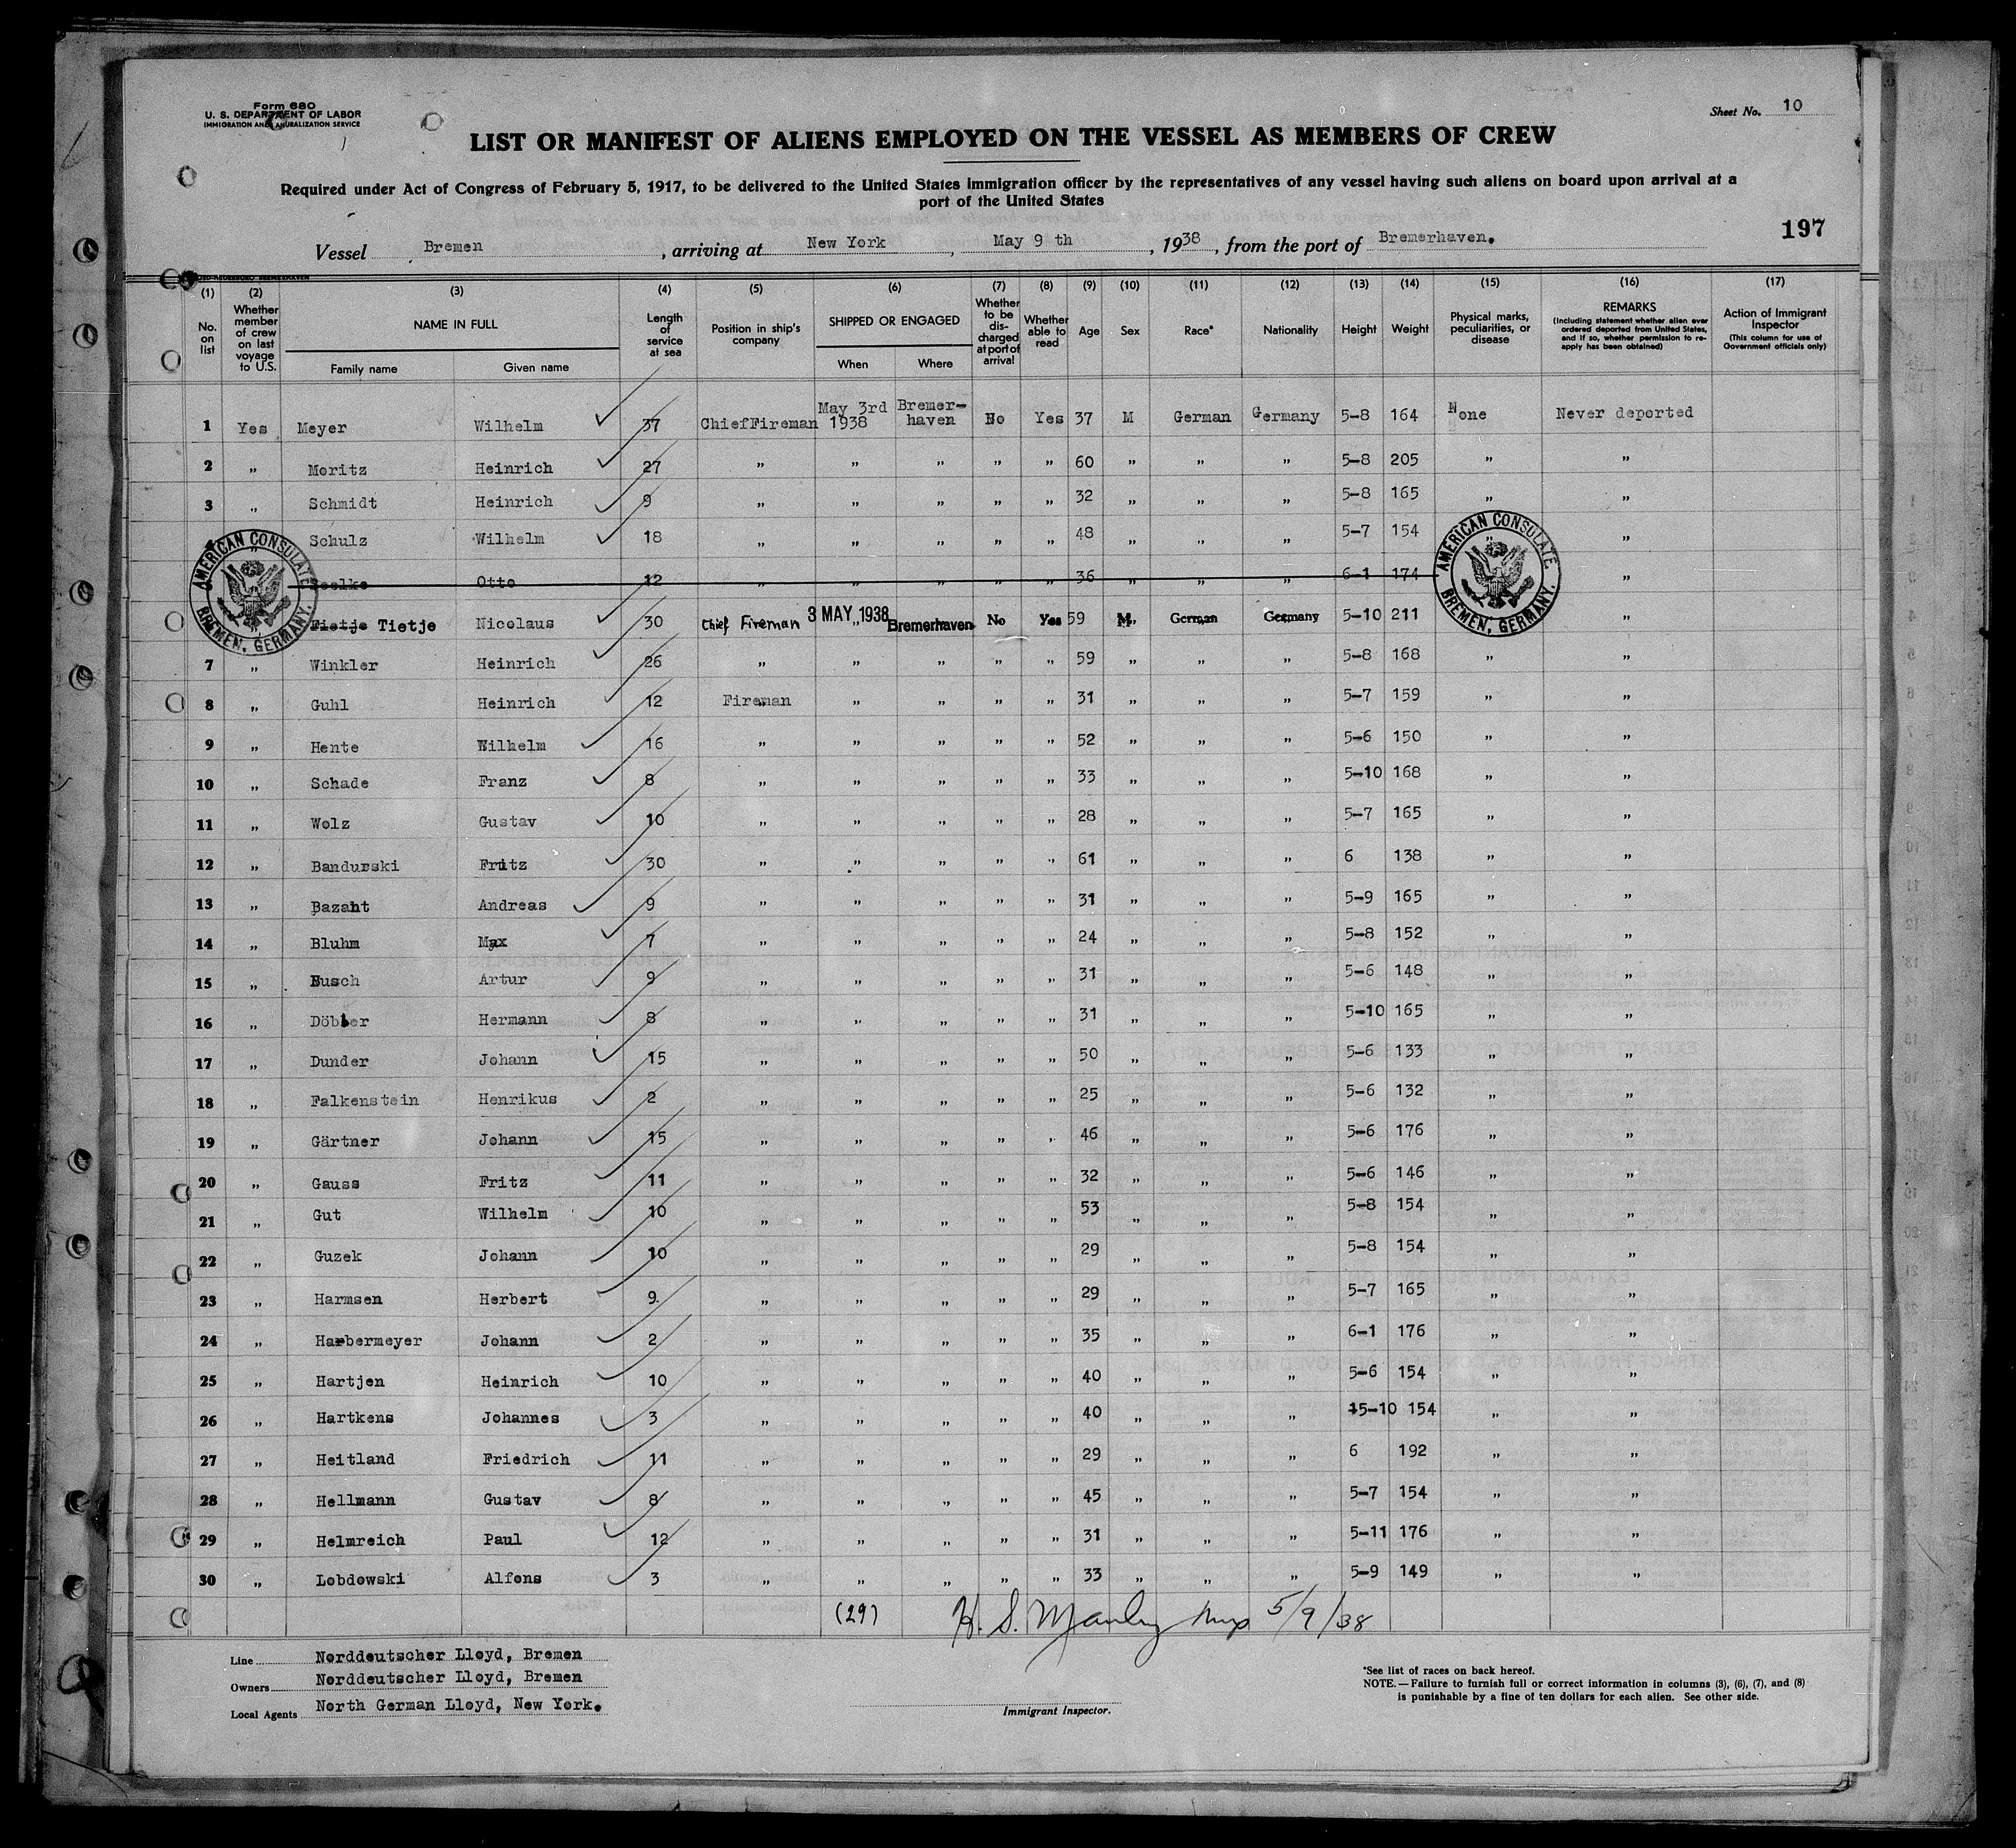 Form 680
U. S. DEPARTMENT OF LABOR
IMMIGRATION AND NATURALIZATION SERVICE
Sheet No. 10
LIST OR MANIFEST OF ALIENS EMPLOYED ON THE VESSEL AS MEMBERS OF CREW
Required under Act of Congress of February 5, 1917, to be delivered to the United States Immigration officer by the representatives of any vessel having such aliens on board upon arrival at a
port of the United States
197
Vessel Bremen, arriving at New York, May 9 th, 1938, from the port of Bremerhaven.
(1) No. on list (2) Whether member of crew on last voyage to U.S. (3) NAME IN FULL Family name Given name (4) Length of service at sea (5) Position in ship's company (6) SHIPPED OR ENGAGED When Where (7) Whether to be discharged at port of arrival (8) Whether able to read (9) Age (10) Sex (11) Race* (12) Nationality (13) Height (14) Weight (15) Physical marks, peculiarities, or disease (16) REMARKS (Including statement whether alien ever ordered deported from United States, and if so, whether permission to reapply has been obtained) (17) Action of Immigrant Inspector (This column for use of Government officials only)
1 Yes Meyer Wilhelm 37 ChiefFireman May 3rd 1938 Bremer-haven No Yes 37 M German Germany 5-8 164 None Never deported
2 " Moritz Heinrich 27 " " " " " 60 " " " 5-8 205 " "
3 " Schmidt Heinrich 9 " " " " " 32 " " " 5-8 165 " "
" Schulz Wilhelm 18 " " " " " 48 " " " 5-7 154 " "
Otto 12 " " " " " 36 " " " 6-1 174 "
Tietje Nicolaus 30 Chief Fireman 3 MAY 1938 Bremerhaven No Yes 59 M. German Germany 5-10 211 "
AMERICAN CONSULATE BREMEN, GERMANY.
AMERICAN CONSULATE BREMEN, GERMANY.
7 " Winkler Heinrich 26 " " " " " 59 " " " 5-8 168 " "
8 " Guhl Heinrich 12 Fireman " " " " 31 " " " 5-7 159 " "
9 " Hente Wilhelm 16 " " " " " 52 " " " 5-6 150 " "
10 " Schade Franz 8 " " " " " 33 " " " 5-10 168 " "
11 " Wolz Gustav 10 " " " " " 28 " " " 5-7 165 " "
12 " Bandurski Fritz 30 " " " " " 61 " " " 6 138 " "
13 " Bazant Andreas 9 " " " " " 31 " " " 5-9 165 " "
14 " Bluhm Max 7 " " " " " 24 " " " 5-8 152 " "
15 " Busch Artur 9 " " " " " 31 " " " 5-6 148 " "
16 " Döbler Hermann 8 " " " " " 31 " " " 5-10 165 " "
17 " Dunder Johann 15 " " " " " 50 " " " 5-6 133 " "
18 " Falkenstein Henrikus 2 " " " " " 25 " " " 5-6 132 " "
19 " Gärtner Johann 15 " " " " " 46 " " " 5-6 176 " "
20 " Gauss Fritz 11 " " " " " 32 " " " 5-6 146 " "
21 " Gut Wilhelm 10 " " " " " 53 " " " 5-8 154 " "
22 " Guzek Johann 10 " " " " " 29 " " " 5-8 154 " "
23 " Harmsen Herbert 9. " " " " " 29 " " " 5-7 165 " "
24 " Harbermeyer Johann 2 " " " " " 35 " " " 6-1 176 " "
25 " Hartjen Heinrich 10 " " " " " 40 " " " 5-6 154 " "
26 " Hartkens Johannes 3 " " " " " 40 " " " 5-10 154 " "
27 " Heitland Friedrich 11 " " " " " 29 " " " 6 192 " "
28 " Hellmann Gustav 8 " " " " " 45 " " " 5-7 154 " "
29 " Helmreich Paul 12 " " " " " 31 " " " 5-11 176 " "
30 " Lobdowski Alfons 3 " " " " " 33 " " " 5-9 149 " "
(29) H. S. Manley 5/9/38
Line Norddeutscher Lloyd, Bremen
Owners Norddeutscher Lloyd, Bremen
Local Agents North German Lloyd, New York.
Immigrant Inspector.
*See list of races on back hereof.
NOTE.—Failure to furnish full or correct information in columns (3), (6), (7), and (8)
is punishable by a fine of ten dollars for each alien. See other side.